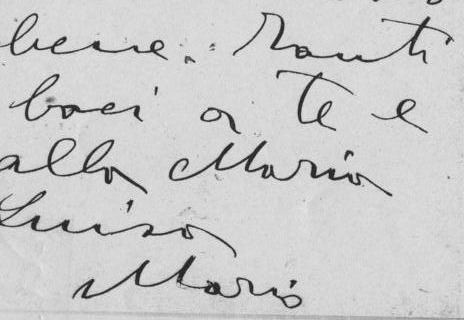 bene. Tanti
baci a te e
alla Maria
Luisa
Mario